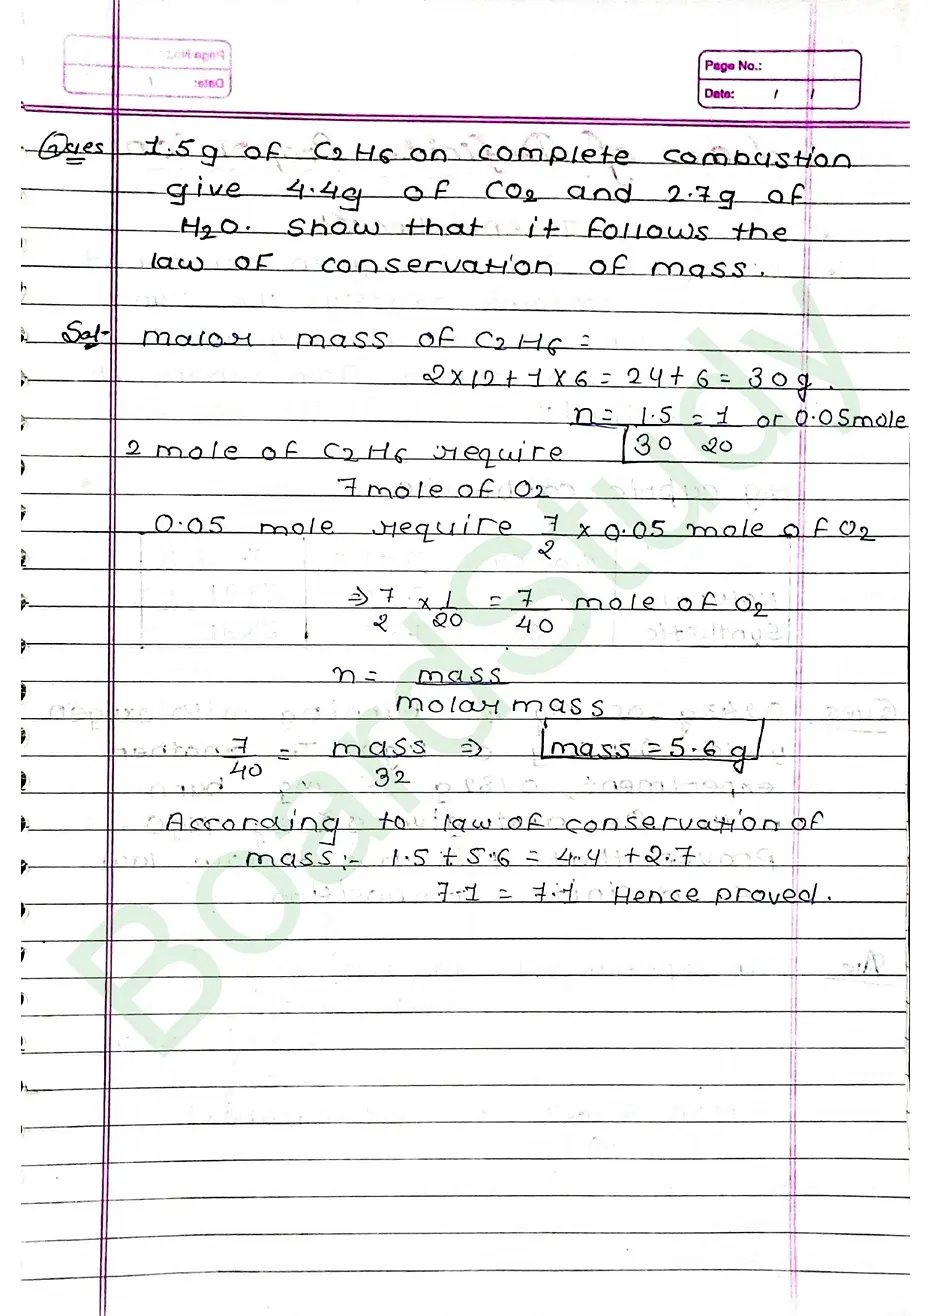 Page No.:
Date: / /
Ques 1.5g of C2H6 on complete combustion
give 4.4g of CO2 and 2.7g of
H2O. Show that it follows the
law of conservation of mass.
Sol- molar mass of C2H6 =
2×12+1×6=24+6=30g.
n= 1.5/30 = 1/20 or 0.05mole
2 mole of C2H6 require
7mole of O2
0.05 mole require 7/2 × 0.05 mole of O2
⇒ 7/2 × 1/20 = 7/40 mole of O2
n= mass/molar mass
7/40 = mass/32 ⇒ mass = 5.6 g
According to law of conservation of
mass:- 1.5+5.6=4.4+2.7
7.1 = 7.1 Hence proved.
BoardStudy